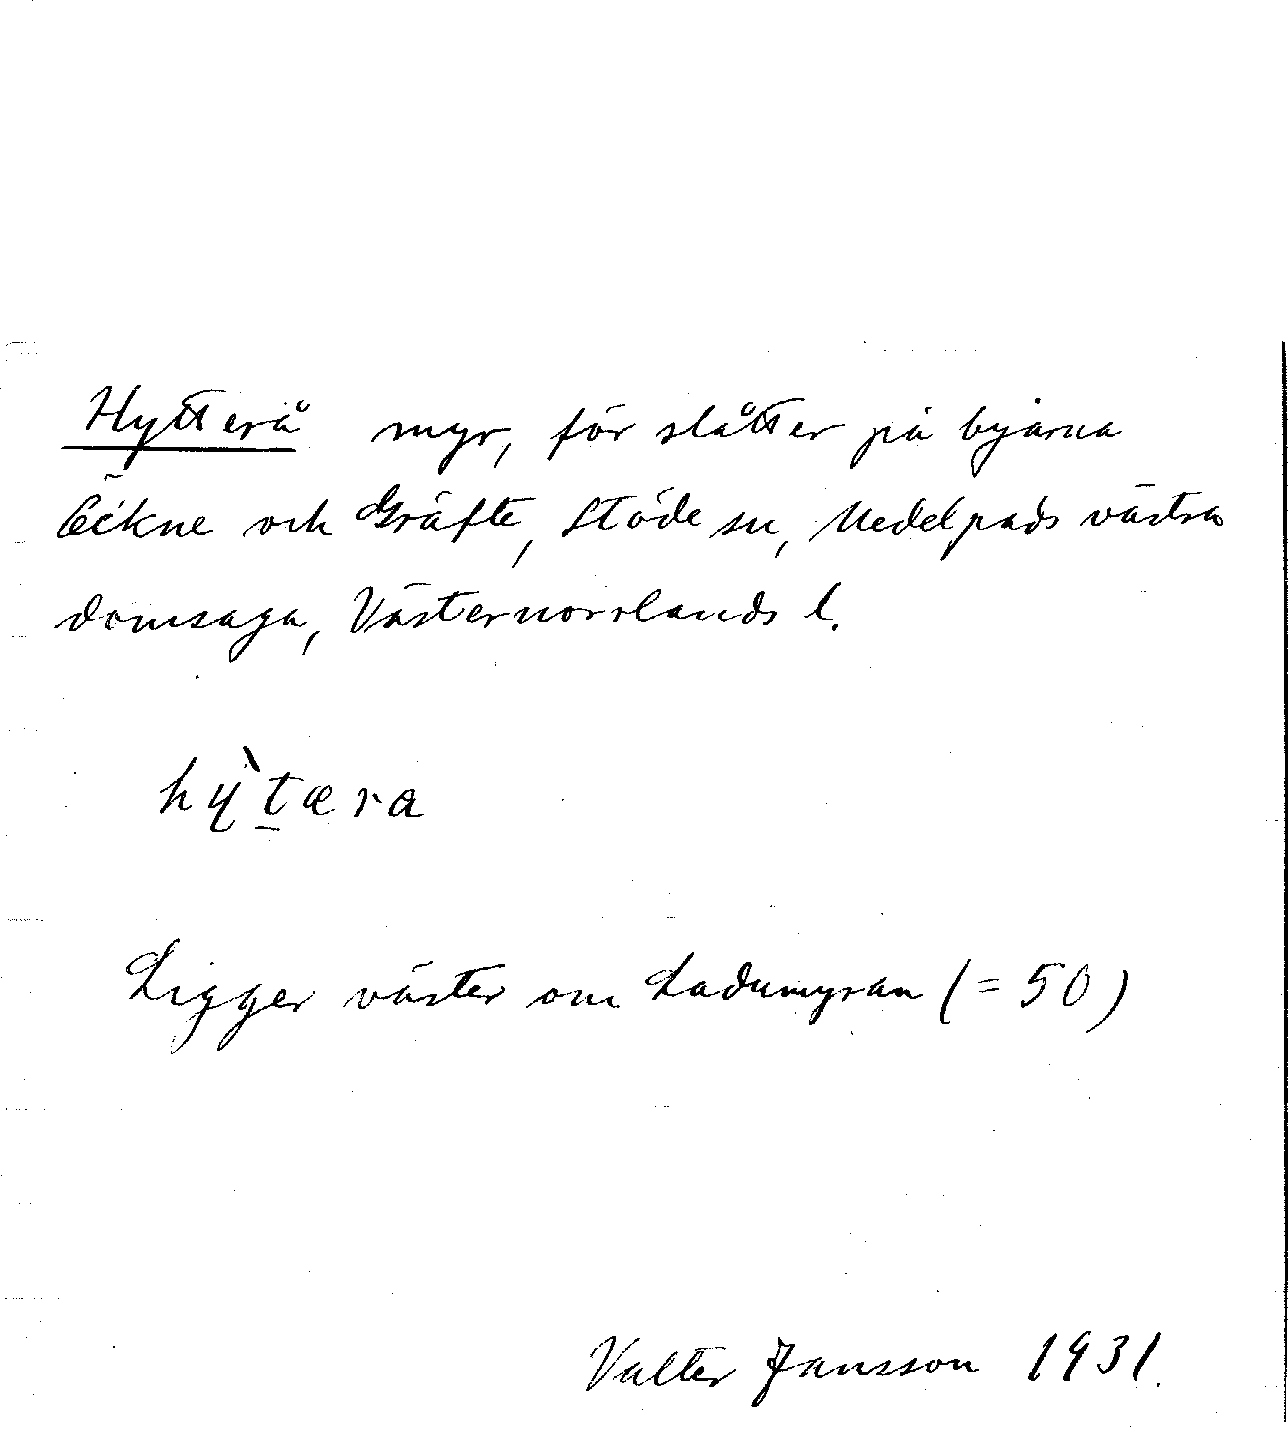 Hytterå myr, för slåtter på byarna
Öckne och Gräfte, Stöde sn, Medelpads västra
domsaga, Västernorrlands l.
hỳtæra
Ligger väster om Ladumyran (= 50)
Valter Jansson 1931.